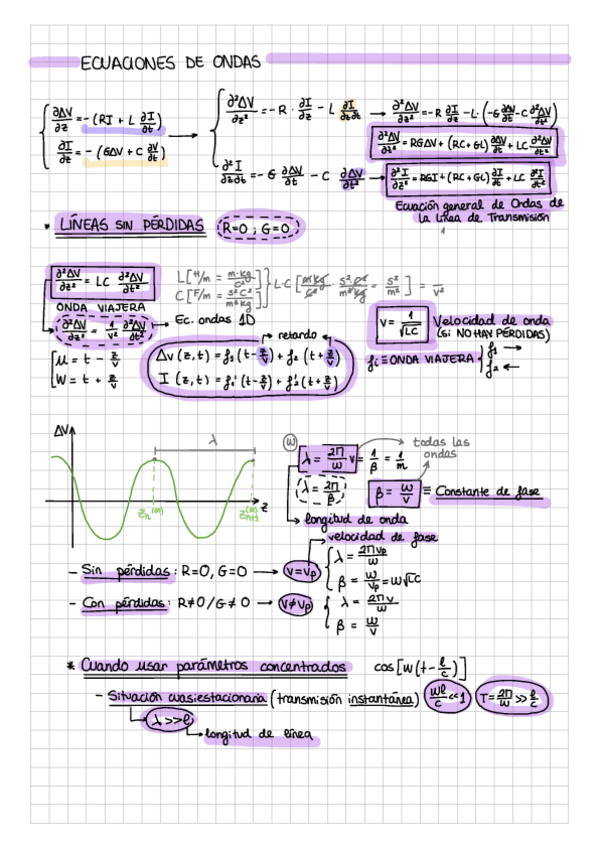 ECUACIONES DE ONDAS
∂ΔV/∂z = -(RI + L ∂I/∂t)
∂I/∂z = -(GΔV + C ∂V/∂t)
∂²ΔV/∂z² = -R · ∂I/∂z - L ∂I/∂z∂t → ∂²ΔV/∂z² = -R ∂I/∂z - L · (-G ∂ΔV/∂t - C ∂²ΔV/∂t²)
∂²ΔV/∂z² = RGΔV + (RC + GL) ∂ΔV/∂t + LC ∂²ΔV/∂t²
∂²I/∂z∂t = -G ∂ΔV/∂t - C ∂ΔV/∂t² → ∂²I/∂z² = RGI + (RC + GL) ∂I/∂t + LC ∂²I/∂t²
Ecuación general de Ondas de
la Línea de Transmisión
* LÍNEAS SIN PÉRDIDAS (R=0 ; G=0)
∂²ΔV/∂z² = LC ∂²ΔV/∂t²
L [H/m = m·kg/C²]
C [F/m = s²C²/m³kg]
L·C [m kg/C² · s²C²/m³kg = s²/m²] = 1/v²
ONDA VIAJERA
∂²ΔV/∂z² = 1/v² ∂²ΔV/∂t² → Ec. ondas 1D
V = 1/√LC Velocidad de onda
(si NO HAY PÉRDIDAS)
retardo
μ = t - z/v
W = t + z/v
Δv (z,t) = f₁ (t - z/v) + f₂ (t + z/v)
I (z,t) = f₁' (t - z/v) + f₂' (t + z/v)
fᵢ ≡ ONDA VIAJERA { f₁ →
f₂ ←
ΔV
λ
z
zₙ⁽ᵐ⁾
zₙ₊₁⁽ᵐ⁾
ω
λ = 2Π/ω v = 1/β = 1/m
todas las
ondas
λ = 2Π/β
β = ω/v ≡ Constante de fase
longitud de onda
velocidad de fase
- Sin pérdidas : R=0, G=0 → V=Vp
λ = 2Πvp/ω
β = ω/vp = ω√LC
- Con pérdidas : R≠0 / G≠0 → V≠Vp
λ = 2Πv/ω
β = ω/v
* Cuando usar parámetros concentrados cos[ω(t - ℓ/c)]
- Situación cuasiestacionaria (transmisión instantánea) ωℓ/c << 1 T = 2Π/ω >> ℓ/c
λ >> ℓ
longitud de línea